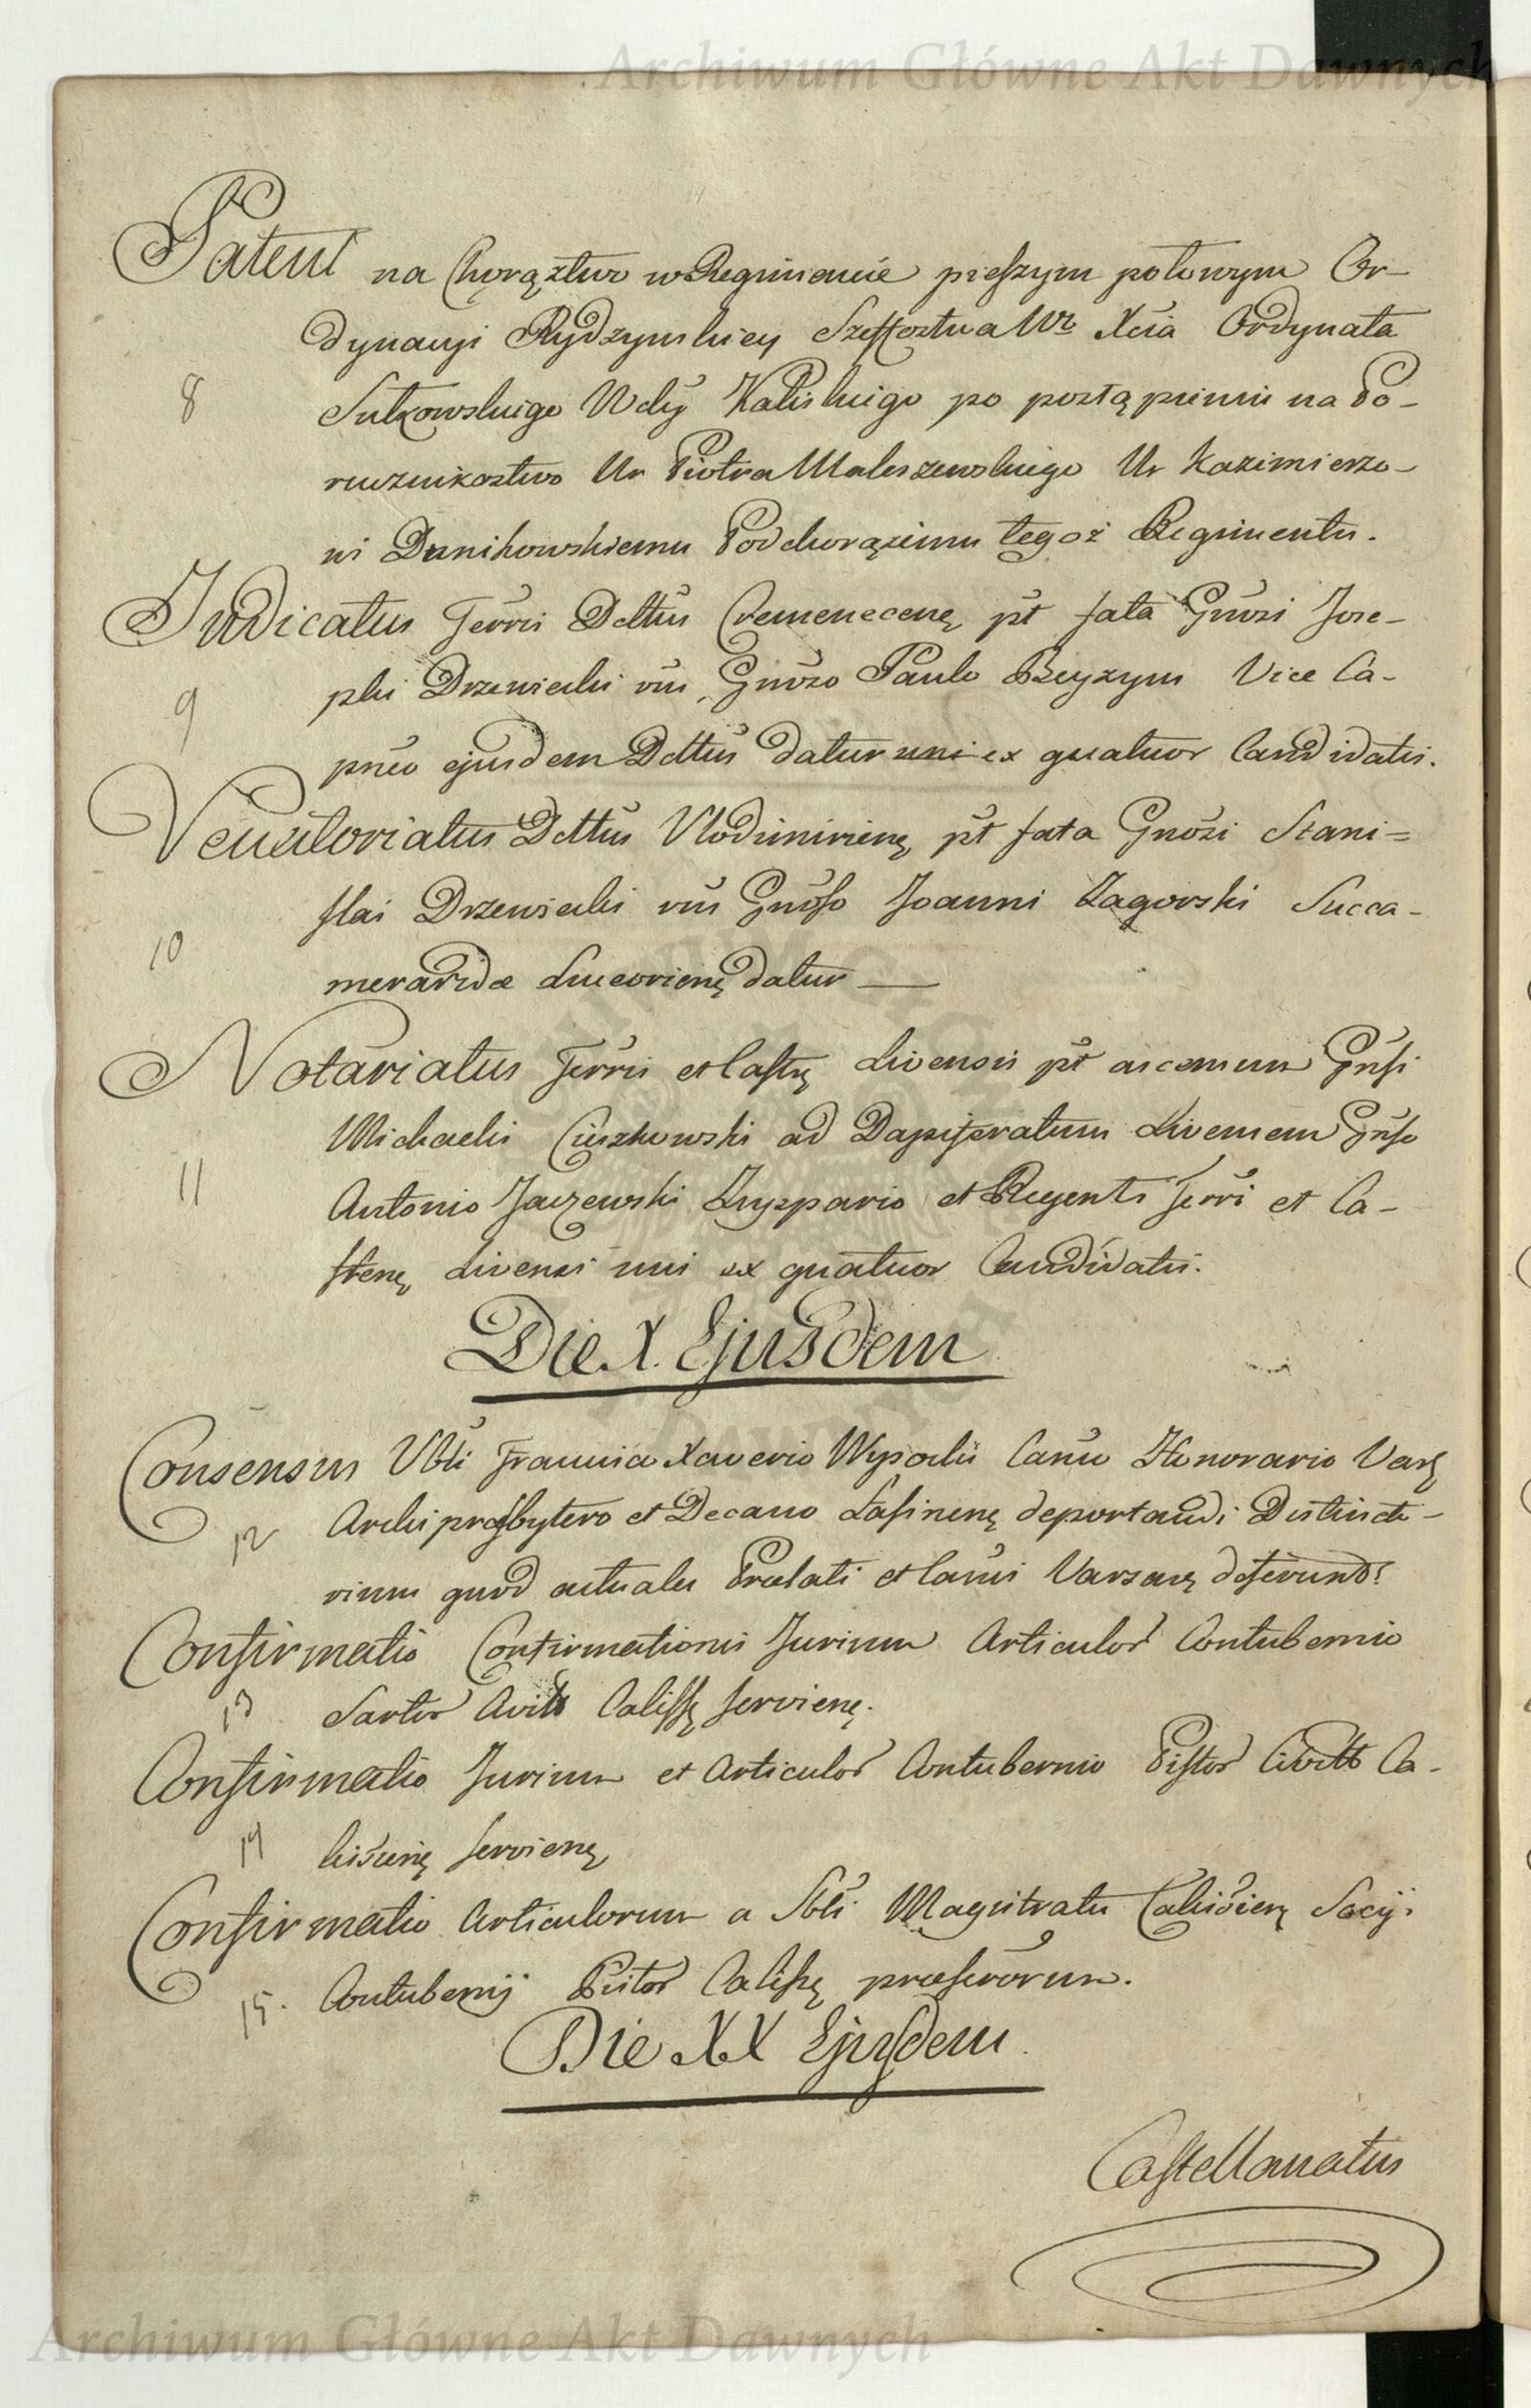 Archiwum Główne Akt Dawnych
Patent na Chorąztwo w Regimencie pieszym polowym Or-
dynacyi Rydzynskiey Szeffostwa Wo Xcia Ordynata
8 Sułkowskiego Wdy Kaliskiego po postąpieniu na Po-
rucznikostwo Ur Piotra Maleszewskiego Ur Kazimierzo-
wi Dunikowskiemu Podchorążemu tegoż Regimentu.
Judicatus Terris Dcttus Cremenecenę pt fata Gnosi Jose-
9 phi Drzewiecki viii Gnoso Paulo Beyzym Vice Ca-
pneo ejusdem Dcttus datur uni ex quatuor Candidatis.
Venatoriatus Dcttus Vlodimirienę pt fata Gnosi Stani=
10 slai Drzewiecki viii Gnoso Joanni Zagorski Succa-
meraridæ Luceorienę datur
Notariatus Terris et Castrę Livensis pt ascensum Gnsi
11 Michaelis Cieszkowski ad Dapiferatum Livensem Gnso
Antonio Jaczewski et Regenti Terri et Ca-
strenę Livensi uni ex quatuor Candidatis.
Die X. Ejusdem
Consensus Vbli Francisco Xaverio Wysocki Canco Honorario Varsę
12 Archipresbytero et Decano Lasinenę deportandi Distincto-
rium quod actuales Prælati et Canci Varsavę deferunt
Confirmatio Confirmationis Jurium Articulor Contubernio
13 Sartor Cvitt Calissę servienę.
Confirmatio Jurium et Articulor Contubernio Pistor Civitt Ca-
14 lisienę servienę
Confirmatio Articulorum a Sbli Magistratu Calisienę Socij.
15. Contubernij Pistor Calissę præscrorum.
Die XX Ejusdem
Castellanatus
Archiwum Główne Akt Dawnych